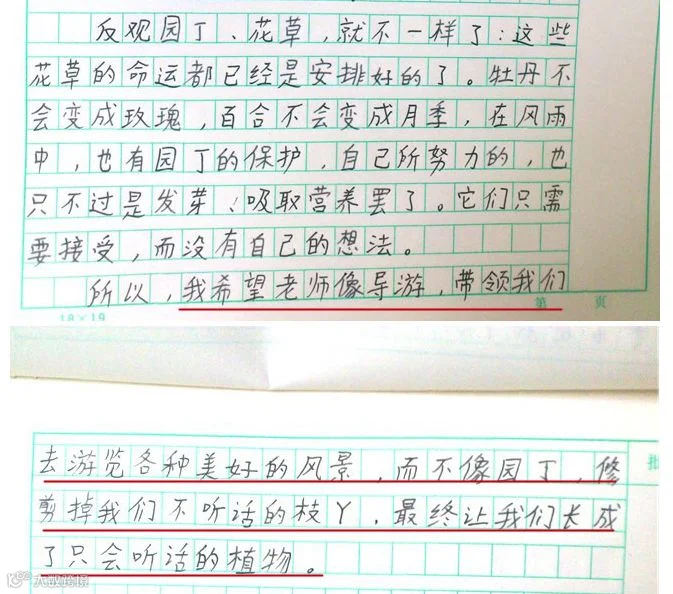 反观园丁、花草，就不一样了：这些
花草的命运都已经是安排好的了。牡丹不
会变成玫瑰，百合不会变成月季，在风雨
中，也有园丁的保护，自己所努力的，也
只不过是发芽、吸取营养罢了。它们只需
要接受，而没有自己的想法。
所以，我希望老师像导游，带领我们
第 页
18×19
去游览各种美好的风景，而不像园丁，修
剪掉我们不听话的枝丫，最终让我们长成
了只会听话的植物。